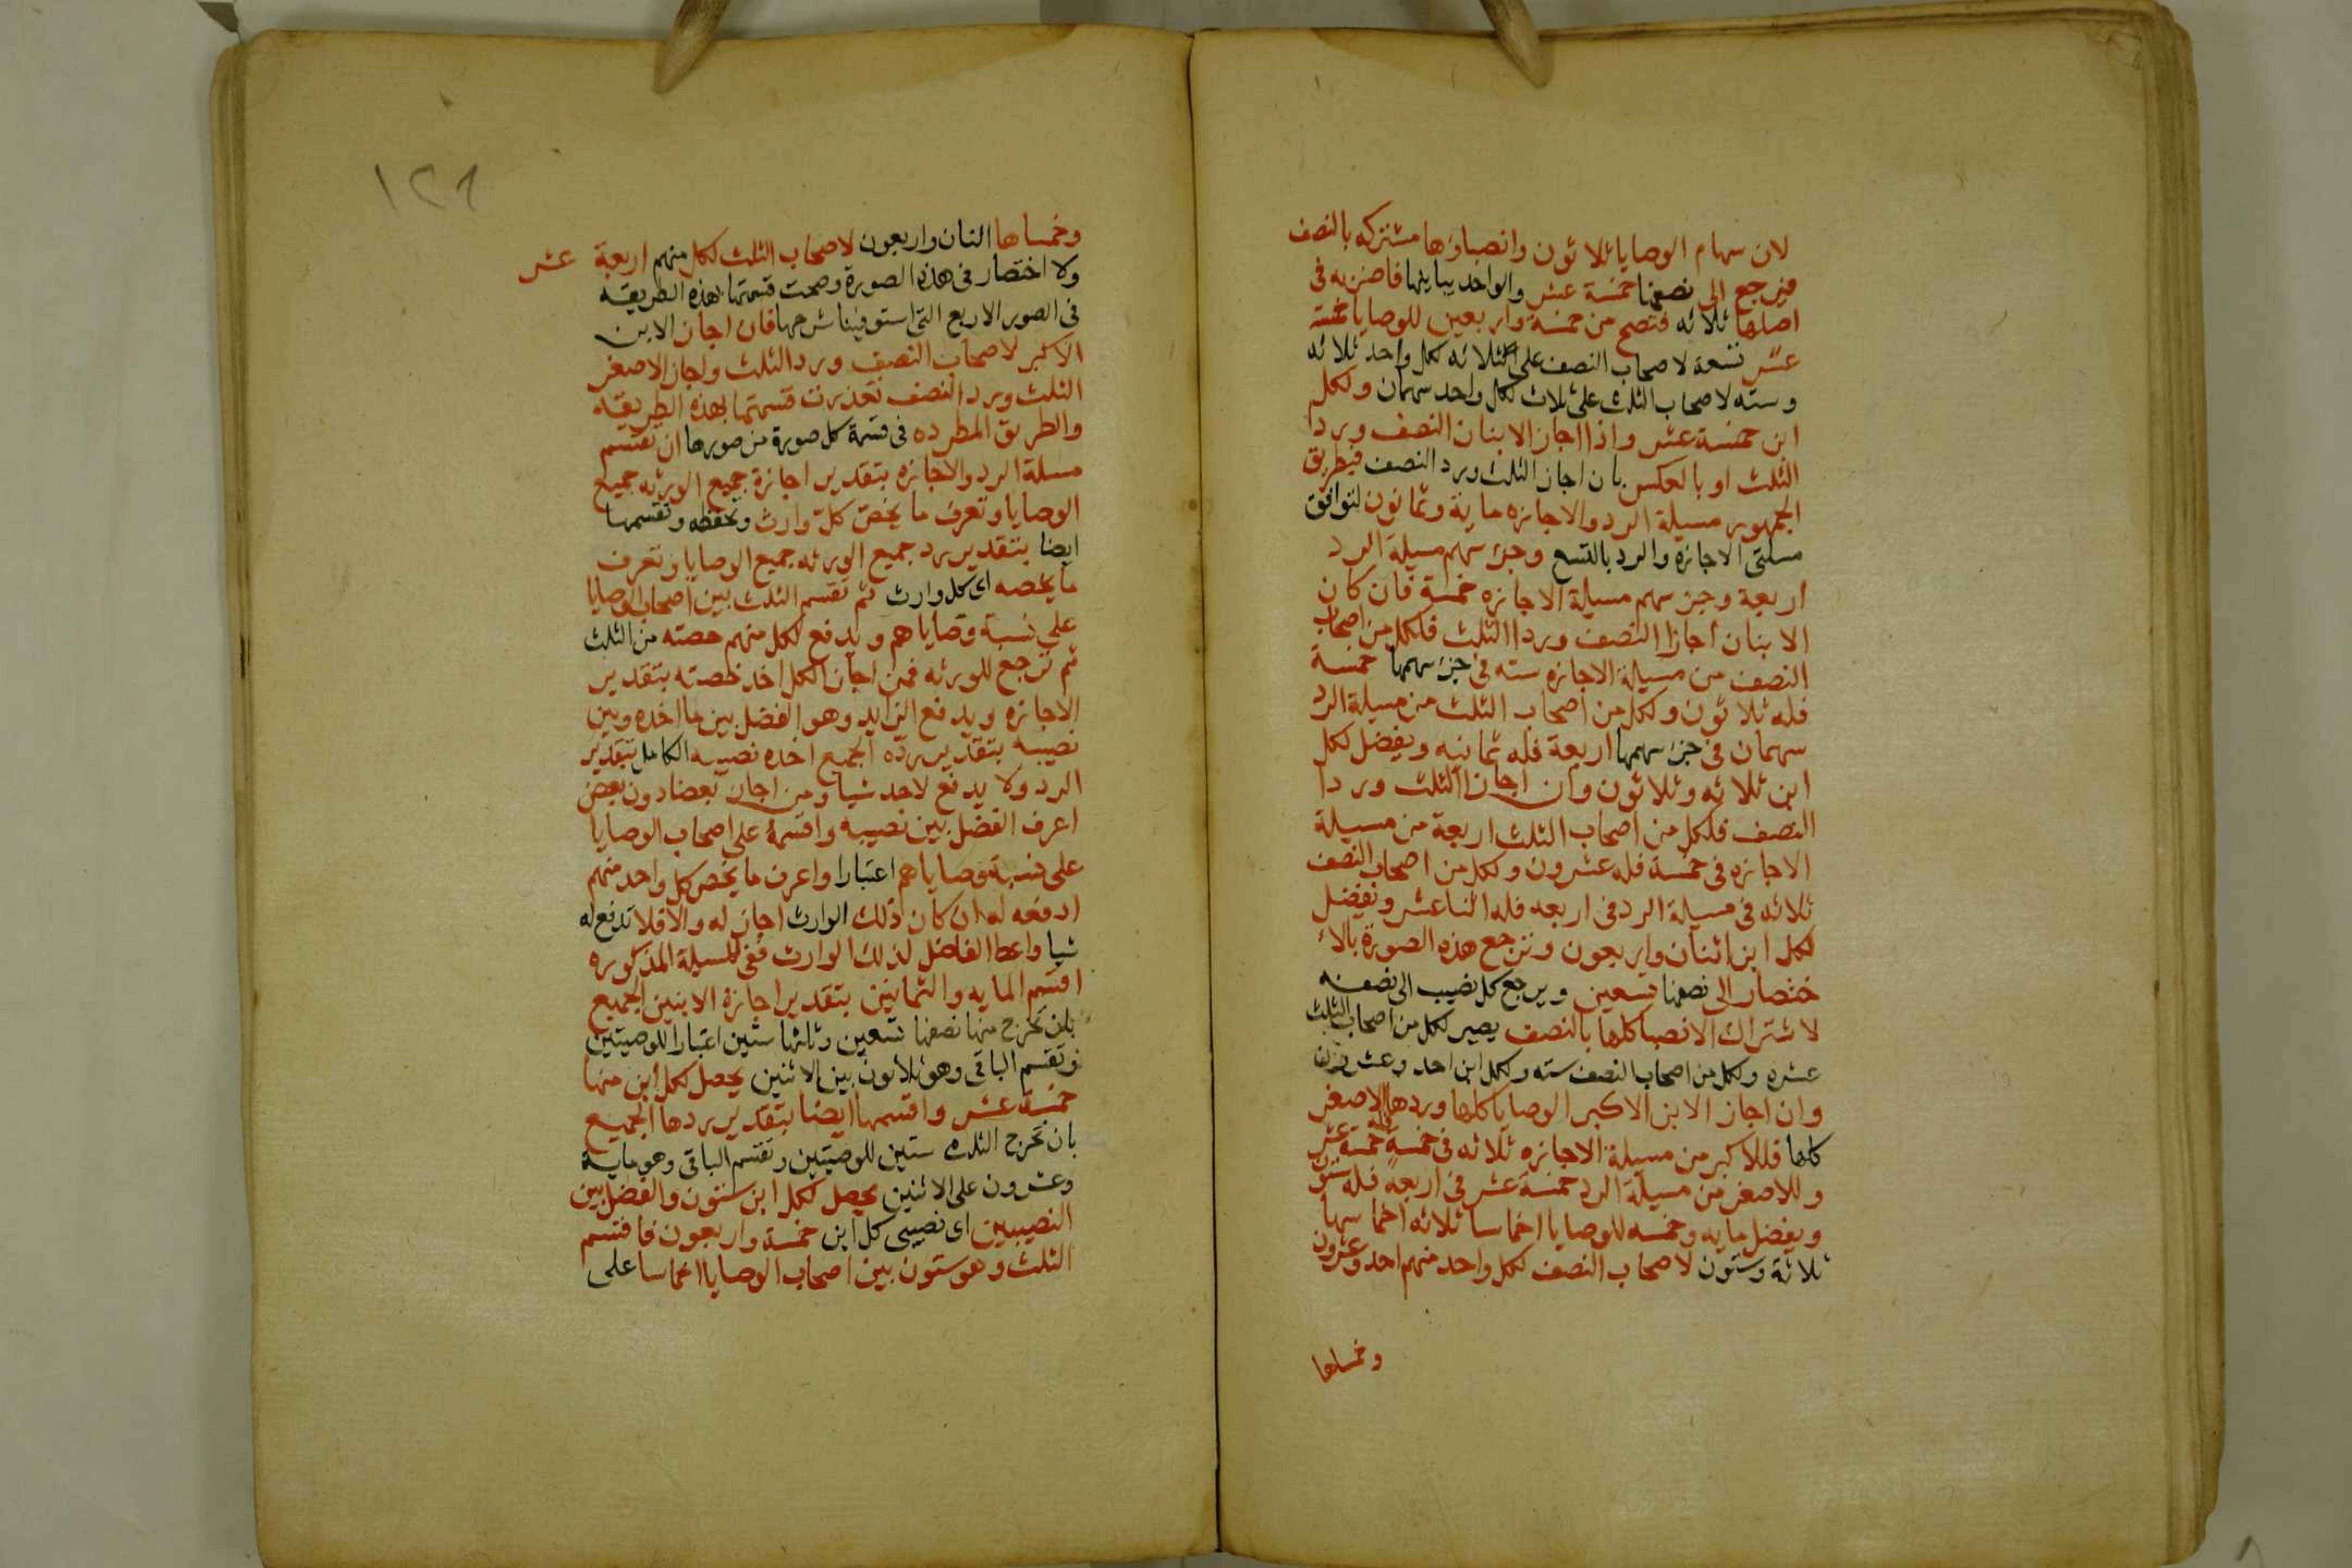 لان سهام الوصايا ثلاثون وانصباؤها مشتركه بالنصف
فترجع الى نصفها خمسة عشر والواحد يباينها فاضربه في
اصلها ثلاثه فتصح من خمسة واربعين للوصايا خمسة
عشر تسعة لاصحاب النصف على الثلاثه لكل واحد ثلاثه
وسته لاصحاب الثلث على ثلاث لكل واحد سهمان ولكل
ابن خمسة عشر واذا اجاز الابنان النصف وردا
الثلث او بالعكس بان اجاز الثلث ورد النصف فبطريق
الجمهور مسيلة الرد والاجازه ماية وثمانون لتوافق
مسلتى الاجازه والرد بالتسع وجزء سهم مسيلة الرد
اربعة وجزء سهم مسيلة الاجازه خمسة فان كان
الابنان اجازا النصف وردا الثلث فلكل من اصحاب
النصف من مسيلة الاجازه سته في جزء سهمها خمسة
فله ثلاثون ولكل من اصحاب الثلث من مسيلة الرد
سهمان في جزء سهمها اربعة فله ثمانيه ويفضل لكل
ابن ثلاثه وثلاثون وان اجازا الثلث وردا
النصف فلكل من اصحاب الثلث اربعة من مسيلة
الاجازه في خمسة فله عشرون ولكل من اصحاب النصف
ثلاثه في مسيلة الرد في اربعه فله اثنا عشر ويفضل
لكل ابن اثنان واربعون وترجع هذه الصورة بالا
ختصار الى نصفها تسعين ويرجع كل نصيب الى نصفه
لاشتراك الانصبا كلها بالنصف يصير لكل من اصحاب الثلث
عشره ولكل من اصحاب النصف سته ولكل ابن احد وعشرون
وان اجاز الابن الاكبر الوصايا كلها وردها الاصغر
كلها فللاكبر من مسيلة الاجازه ثلاثه في خمسة خمسة عشر
وللاصغر من مسيلة الرد خمسة عشر في اربعة فله ستون
ويفضل مايه وخمسه للوصايا اخماسا ثلاثه اخماسها
ثلاثة وستون لاصحاب النصف لكل واحد منهم احد وعشرون
وخمساها
١٢٨
وخمساها اثنان واربعون لاصحاب الثلث لكل منهم اربعة عشر
ولا اختصار في هذه الصورة وصحت قسمتها بهذه الطريقه
في الصور الاربع التي استوفينا شرحها فان اجاز الابن
الاكبر لاصحاب النصف ورد الثلث واجاز الاصغر
الثلث ورد النصف تعذرت قسمتها بهذه الطريقه
والطريق المطرده في قسمة كل صورة من صورها ان تقسم
مسلة الرد والاجازه بتقدير اجازة جميع الورثه جميع
الوصايا وتعرف ما يخص كل وارث وتحفظه وتقسمها
ايضا بتقدير رد جميع الورثه جميع الوصايا وتعرف
ما يخصه اى كل وارث ثم تقسم الثلث بين اصحاب الوصايا
على نسبة وصاياهم ويدفع لكل منهم حصته من الثلث
ثم ترجع للورثه فمن اجاز الكل اخذ حصته بتقدير
الاجازه ويدفع الزايد وهو الفضل بين ما اخذه وبين
نصيبه بتقدير رده الجميع اخذه نصيبه الكامل بتقدير
الرد ولا يدفع لاحد شيا ومن اجاز بعضا دون بعض
اعرف الفضل بين نصيبيه واقسمه على اصحاب الوصايا
على نسبة وصاياهم اعتبارا واعرف ما يخص كل واحد منهم
ادفعه له ان كان ذلك الوارث اجاز له والا فلا تدفع له
شيا واعط الفاضل لذلك الوارث ففي المسيلة المذكوره
اقسم المايه والثمانين بتقدير اجازة الابنين الجميع
بان تخرج منها نصفها تسعين وثلثها ستين اعتبارا للوصيتين
وتقسم الباقى وهو ثلاثون بين الاثنين يحصل لكل ابن منها
خمسة عشر واقسمها ايضا بتقدير ردها الجميع
بان تخرج الثلث ستين للوصيتين وتقسم الباقى وهو ماية
وعشرون على الاثنين يحصل لكل ابن ستون والفضل بين
النصيبين اى نصيبى كل ابن خمسة واربعون فاقسم
الثلث وهو ستون بين اصحاب الوصايا اخماسا على